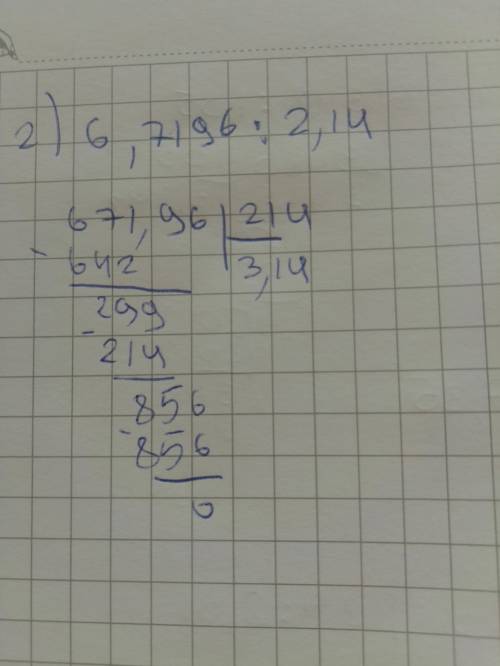 2) 6,7196 : 2,14
671,96 | 214
- 642 | 3,14
299
- 214
856
- 856
0